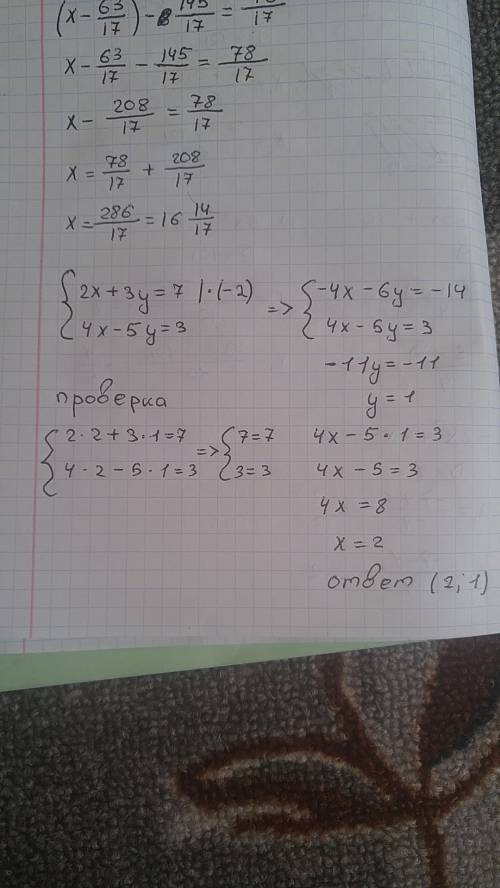 (x - 63/17) - 8 145/17 = /17
x - 63/17 - 145/17 = 78/17
x - 208/17 = 78/17
x = 78/17 + 208/17
x = 286/17 = 16 14/17
{ 2x + 3y = 7 | · (-2) => { -4x - 6y = -14
4x - 5y = 3 4x - 5y = 3
-11y = -11
y = 1
проверка
{ 2 · 2 + 3 · 1 = 7 => { 7 = 7
4 · 2 - 5 · 1 = 3 3 = 3
4x - 5 · 1 = 3
4x - 5 = 3
4x = 8
x = 2
ответ (2; 1)